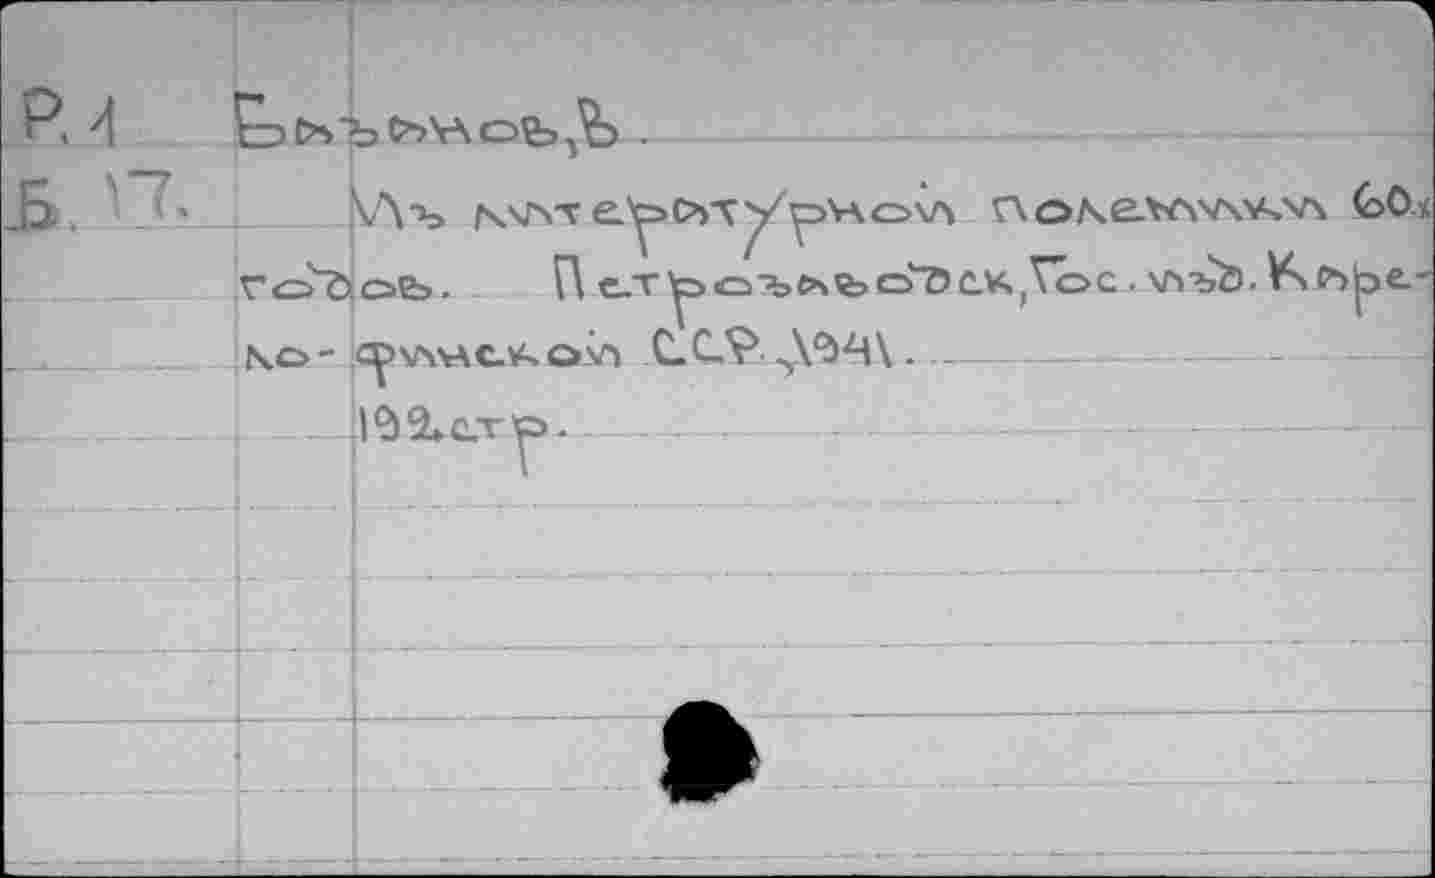 Р. 4 Базанов, В.
Б. 17. Из литературной полемики 60х
годов. Петрозаводск, Гос. изд. Каре-
ло-финской ССР. 1941.
192 стр.